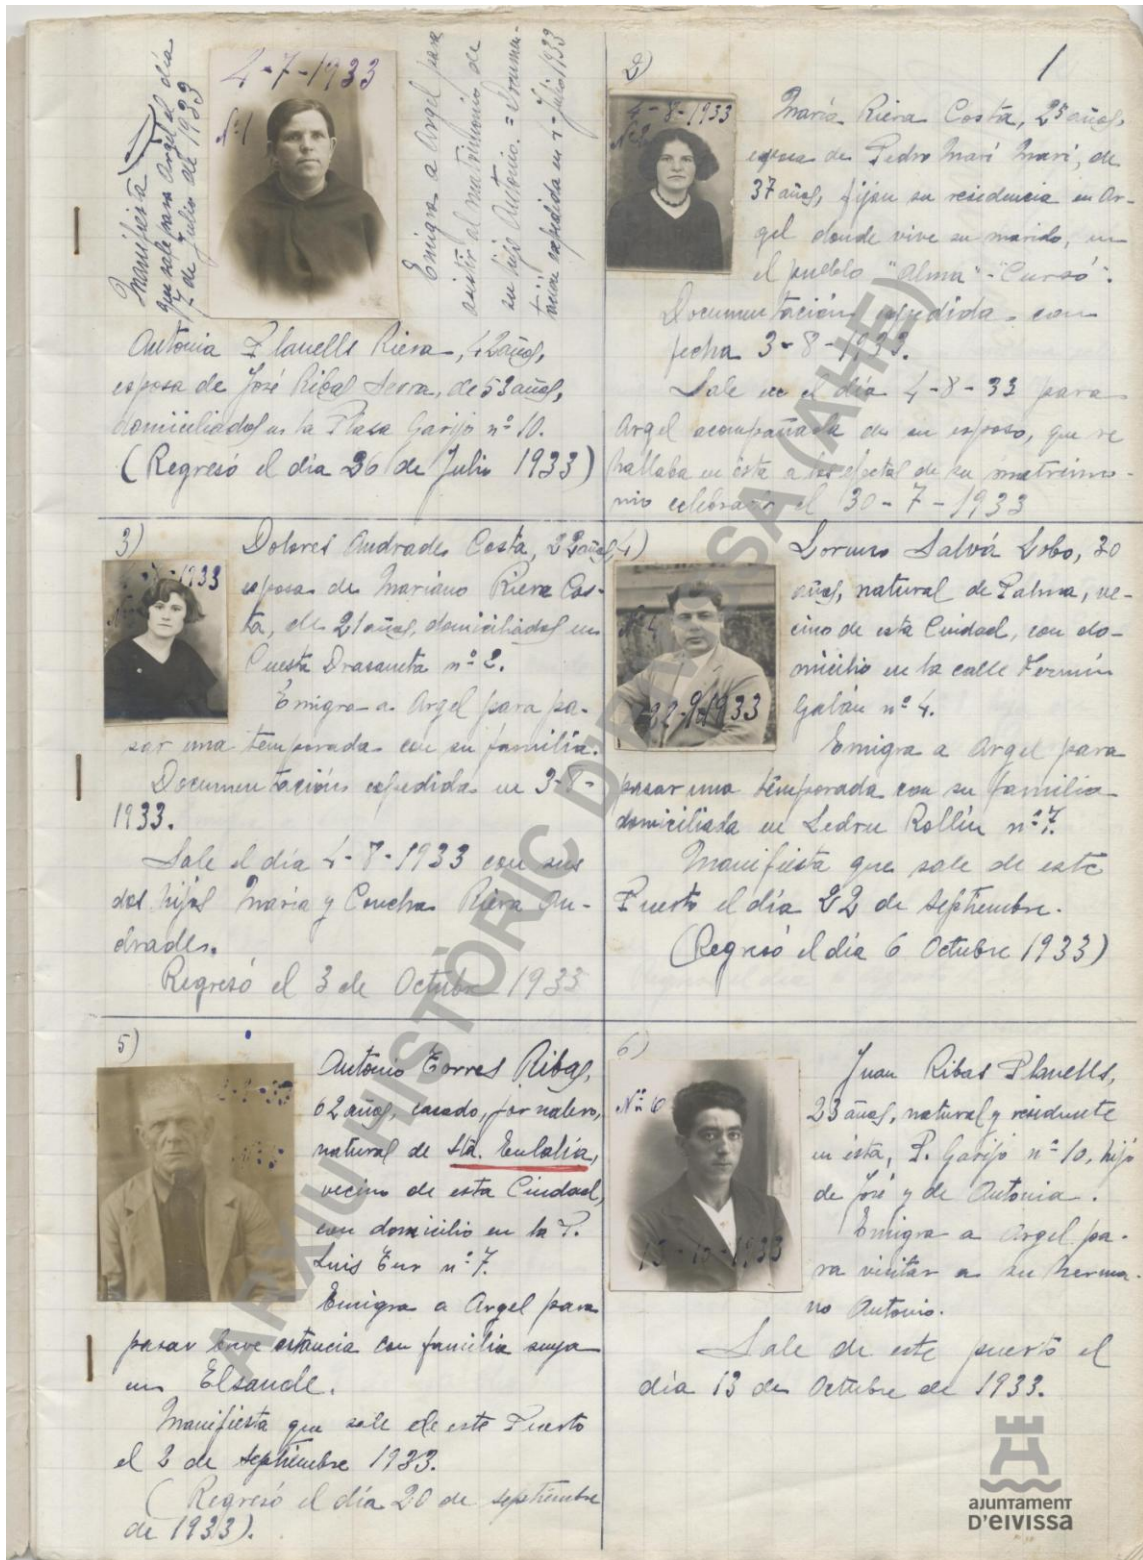 1
Manifiesta
que sale para Argel el día
7 de Julio de 1933
4-7-1933
Nº 1
Emigra a Argel para
asistir al matrimonio de
su hijo Antonio. = Documen-
tación expedida en 4-Julio 1933
Antonia Planells Riera, 42 años,
esposa de José Ribas Serra, de 53 años,
domiciliados en la Plasa Garijo nº 10.
(Regresó el día 26 de Julio 1933)
2)
4-8-1933
Nº 2
María Riera Costa, 25 años,
esposa de Pedro Marí Marí, de
37 años, fijan su residencia en Ar-
gel donde vive su marido, en
el pueblo "Alma"-"Cursó".
Documentación expedida con
fecha 3-8-1933.
Sale en el día 4-8-33 para
Argel acompañada de su esposo, que se
hallaba en ésta a los efectos de su matrimo-
nio celebrado el 30-7-1933
3)
1933
Dolores Andrades Costa, 22 años,
esposa de Mariano Riera Cos-
ta, de 21 años, domiciliados en
Cuesta Drasaneta nº 2.
Emigra a Argel para pa-
sar una temporada con su família.
Documentación expedida en 3-8-
1933.
Sale el día 4-8-1933 con sus
dos hijas María y Concha Riera An-
drades.
Regresó el 3 de Octubre 1933
4)
Nº 4
22-9-1933
Lorenzo Salvá Lobo, 30
años, natural de Palma, ve-
cino de esta Ciudad, con do-
micilio en la calle Fermín
Galán nº 4.
Emigra a Argel para
pasar una temporada con su familia
domiciliada en Ledru Rollín nº 7.
Manifiesta que sale de este
Puerto el día 22 de Septiembre.
(Regresó el día 6 Octubre 1933)
5)
Antonio Torres Ribas,
62 años, casado, jornalero,
natural de Sta. Eulalia,
vecino de esta Ciudad,
con domicilio en la P.
Luis Tur nº 7.
Emigra a Argel para
pasar breve estancia con família suya
en Elsancle.
Manifiesta que sale de este Puerto
el 2 de septiembre 1933.
(Regresó el día 20 de septiembre
de 1933).
6)
Nº 6
13-10-1933
Juan Ribas Planells,
23 años, natural y residente
en ésta, P. Garijo nº 10, hijo
de José y de Antonia.
Emigra a Argel pa-
ra visitar a su herma-
no Antonio.
Sale de este puerto el
día 13 de Octubre de 1933.
ARXIU HISTÒRIC D'EIVISSA (AHE)
ajuntament
D'eivissa